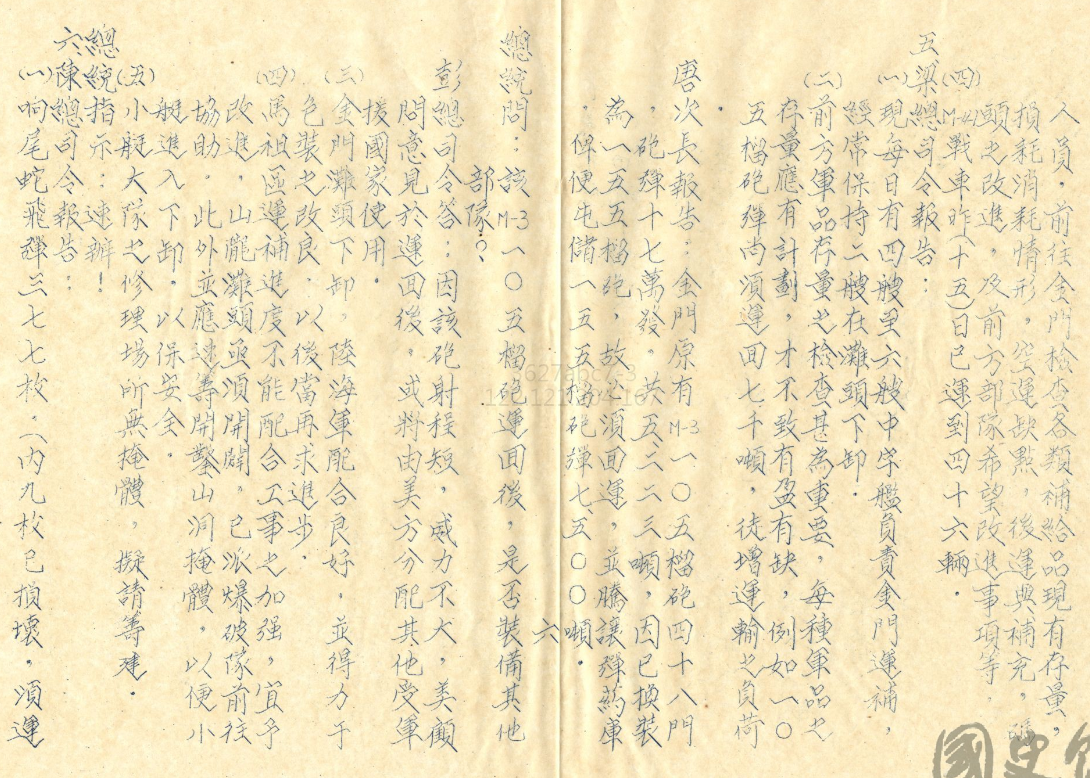 人員，前往金門檢查各類補給品現有存量，
損耗消耗情形，空運缺點，後運與補充，碼
頭之改進，及前方部隊希望改進事項等，
(四)M-41戰車昨(十五)日已運到四十六輛。
五梁總司令報告：
(一)現每日有四艘至六艘中字艦負責金門運補，
經常保持二艘在灘頭下卸．
(二)前方軍品存量之檢查甚為重要，每種軍品之
存量應有計劃，才不致有盈有缺，例如一〇
五榴砲彈尚須運回七千噸，徒增運輸之負荷
。
唐次長報告：金門原有M-3一〇五榴砲四十八門
，砲彈十七萬發。共五二二三噸，因已換裝
為一五五榴砲，故必須回運，並騰讓彈葯庫
，俾便屯儲一五五榴砲彈七、五〇〇噸。
六
總統問：該M-3一〇五榴砲運回後，是否裝備其他
部隊？
彭總司令答：因該砲射程短，威力不大，美顧
問意見於運回後，或將由美方分配其他受軍
援國家使用。
(三)金門灘頭下卸，陸海軍配合良好，並得力于
色裝之改良．以後當再求進步．
(四)馬祖區運補進度不能配合工事之加强，宜予
改進，山隴灘頭亟須開闢，已派爆破隊前往
協助。此外並應速籌開鑿山洞掩體，以便小
艇進入下卸，以保安全．
(五)小艇大隊之修理場所無掩體，擬請籌建．
總統指示：速辦！
六陳總司令報告：
(一)响尾蛇飛彈三七七枚。(內九枚已損壞，須運
國史館